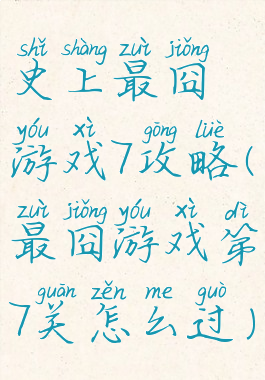 shǐ shàng zuì jiǒng
史上最囧
yóu xì gōng lüè
游戏7攻略(
zuì jiǒng yóu xì dì
最囧游戏第
guān zěn me guò
7关怎么过)